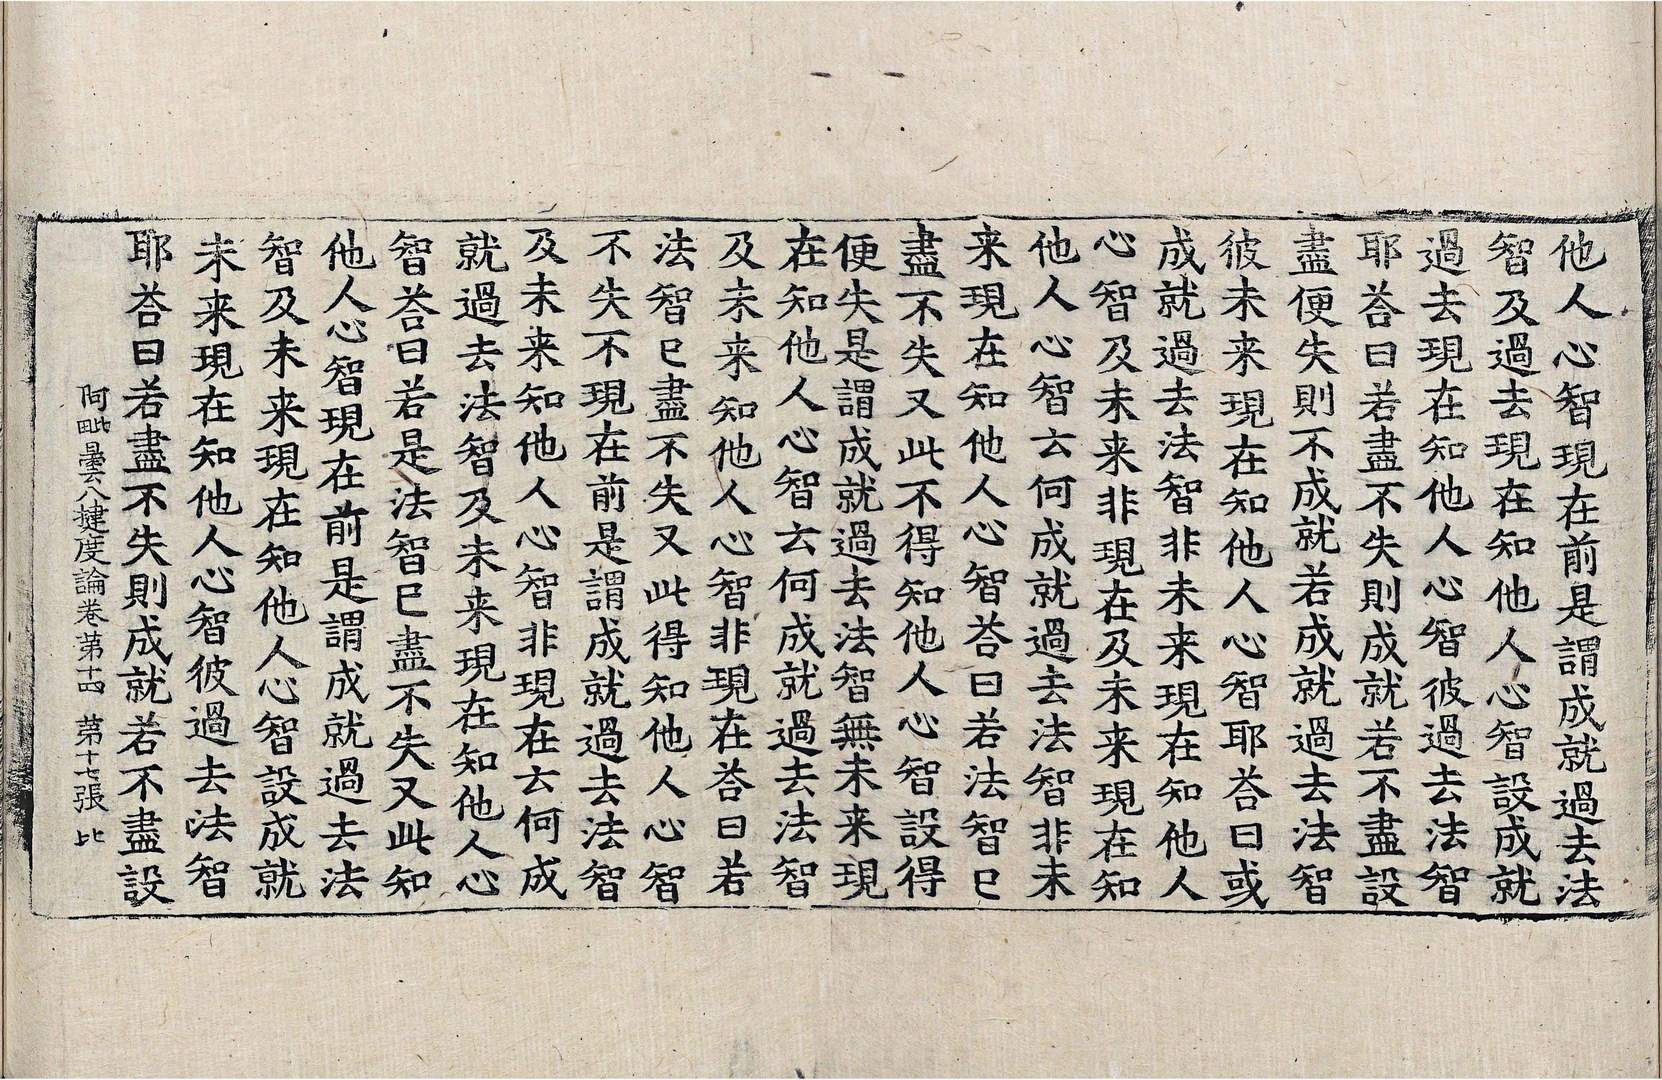 他人心智現在前是謂成就過去法
智及過去現在知他人心智設成就
過去現在知他人心智彼過去法智
耶荅曰若盡不失則成就若不盡設
盡便失則不成就若成就過去法智
彼未来現在知他人心智耶荅曰或
成就過去法智非未来現在知他人
心智及未来非現在及未来現在知
他人心智云何成就過去法智非未
来現在知他人心智荅曰若法智已
盡不失又此不得知他人心智設得
便失是謂成就過去法智無未来現
在知他人心智云何成就過去法智
及未来知他人心智非現在荅曰若
法智已盡不失又此得知他人心智
不失不現在前是謂成就過去法智
及未来知他人心智非現在云何成
就過去法智及未来現在知他人心
智荅曰若是法智已盡不失又此知
他人心智現在前是謂成就過去法
智及未来現在知他人心智設成就
未来現在知他人心智彼過去法智
耶荅曰若盡不失則成就若不盡設
阿毗曇八揵度論卷第十四 第十七張 比